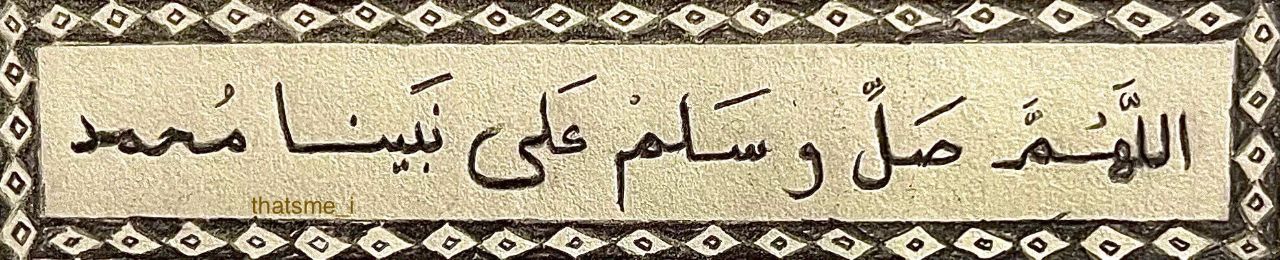 اللَّهُمَّ صَلِّ و سَلمْ عَلى نَبَينا مُحمد
thatsme_i